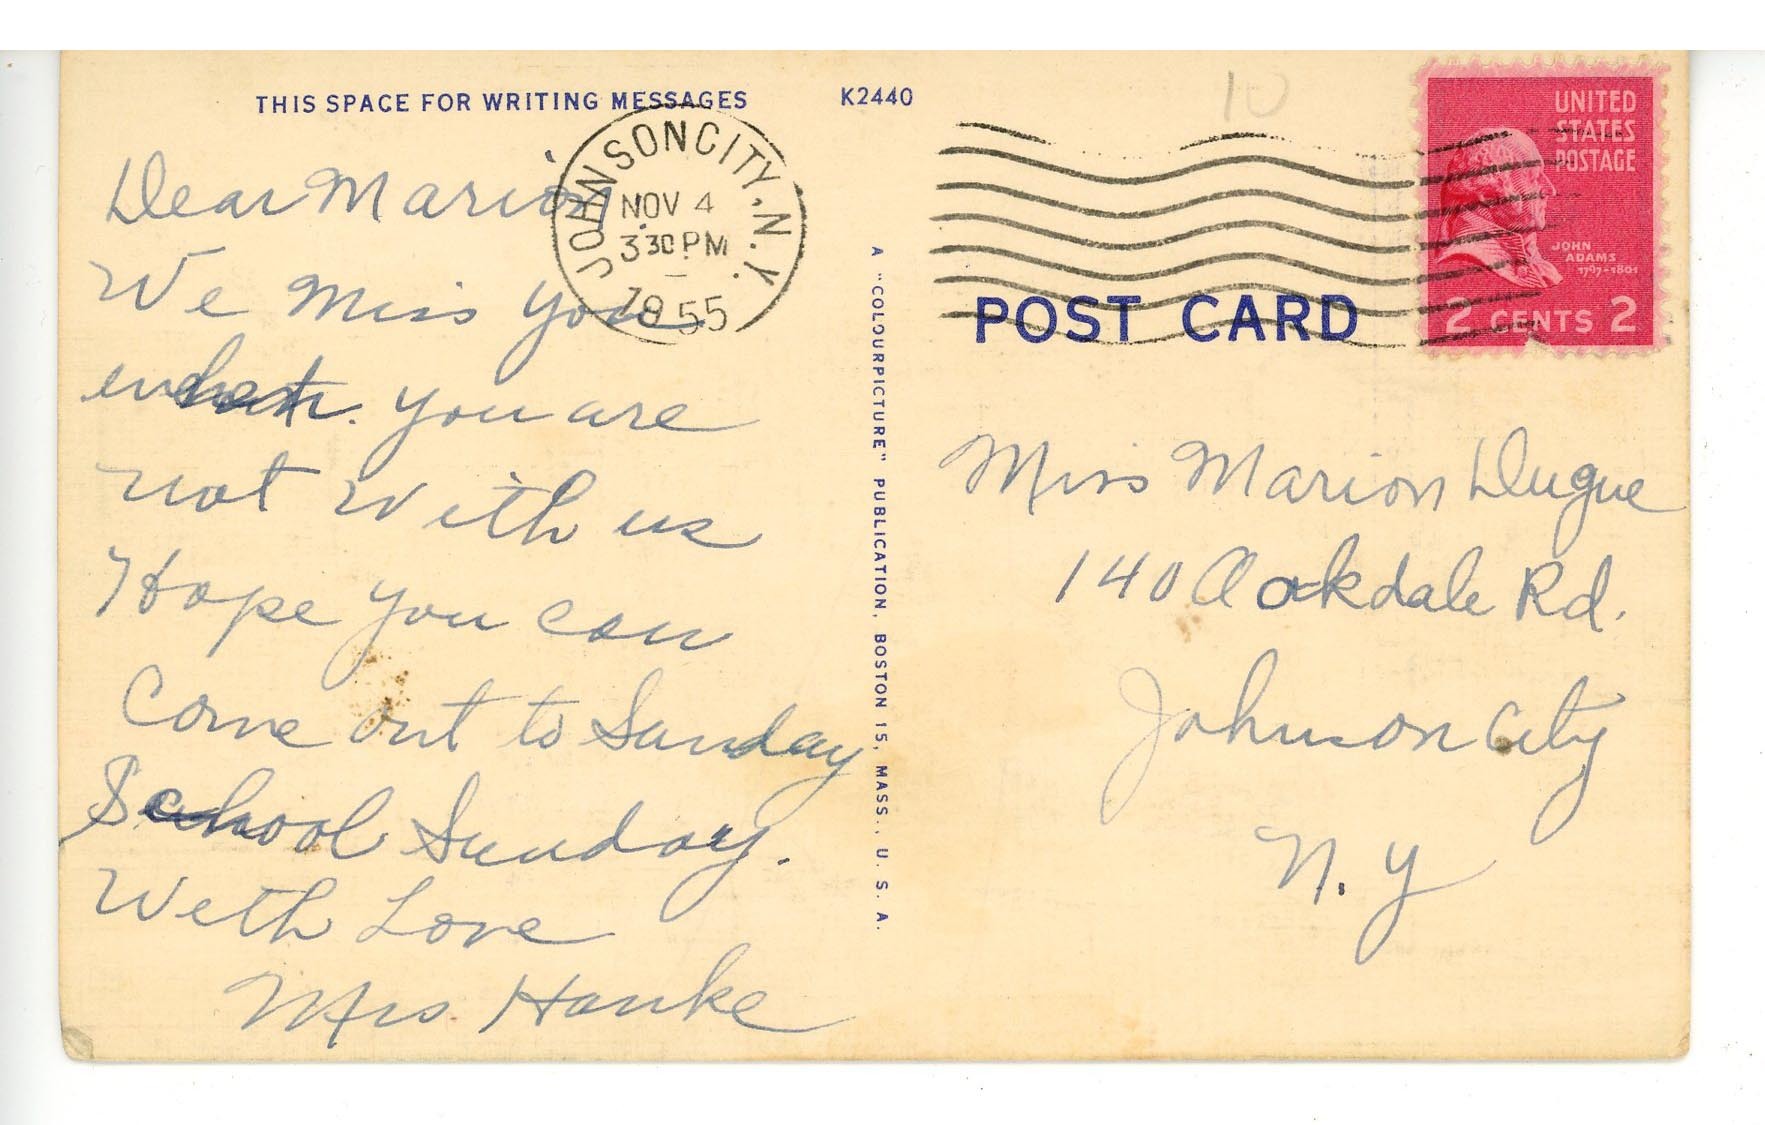 THIS SPACE FOR WRITING MESSAGES
K2440
10
JOHNSON CITY, N.Y.
NOV 4
3 30 PM
1955
UNITED
STATES
POSTAGE
JOHN
ADAMS
1797-1801
2 CENTS 2
POST CARD
Dear Marion,
We Miss you
when you are
not With us
Hope you can
Come out to Sunday
School Sunday.
With Love
Mrs Hanke
A "COLOURPICTURE" PUBLICATION, BOSTON 15, MASS., U. S. A.
Miss Marion Dugue
140 Oakdale Rd.
Johnson City
N. Y